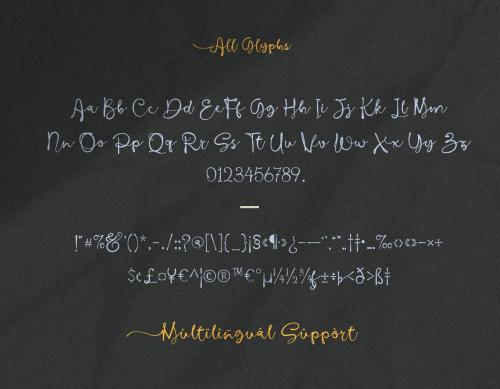 All Glyphs
Aa Bb Cc Dd Ee Ff Gg Hh Ii Jj Kk Ll Mm
Nn Oo Pp Qq Rr Ss Tt Uu Vv Ww Xx Yy Zz
0123456789.
!"#%&'()*,-./:;?@[\]{_}¡§«¶·»¿–—‘’‚“”„†‡•…‰‹›«»-×+
$¢£¤¥€^¦©®™€°µ¼½¾ƒ±÷þ<ð>ß‡
Múltílíngúál Súppórt